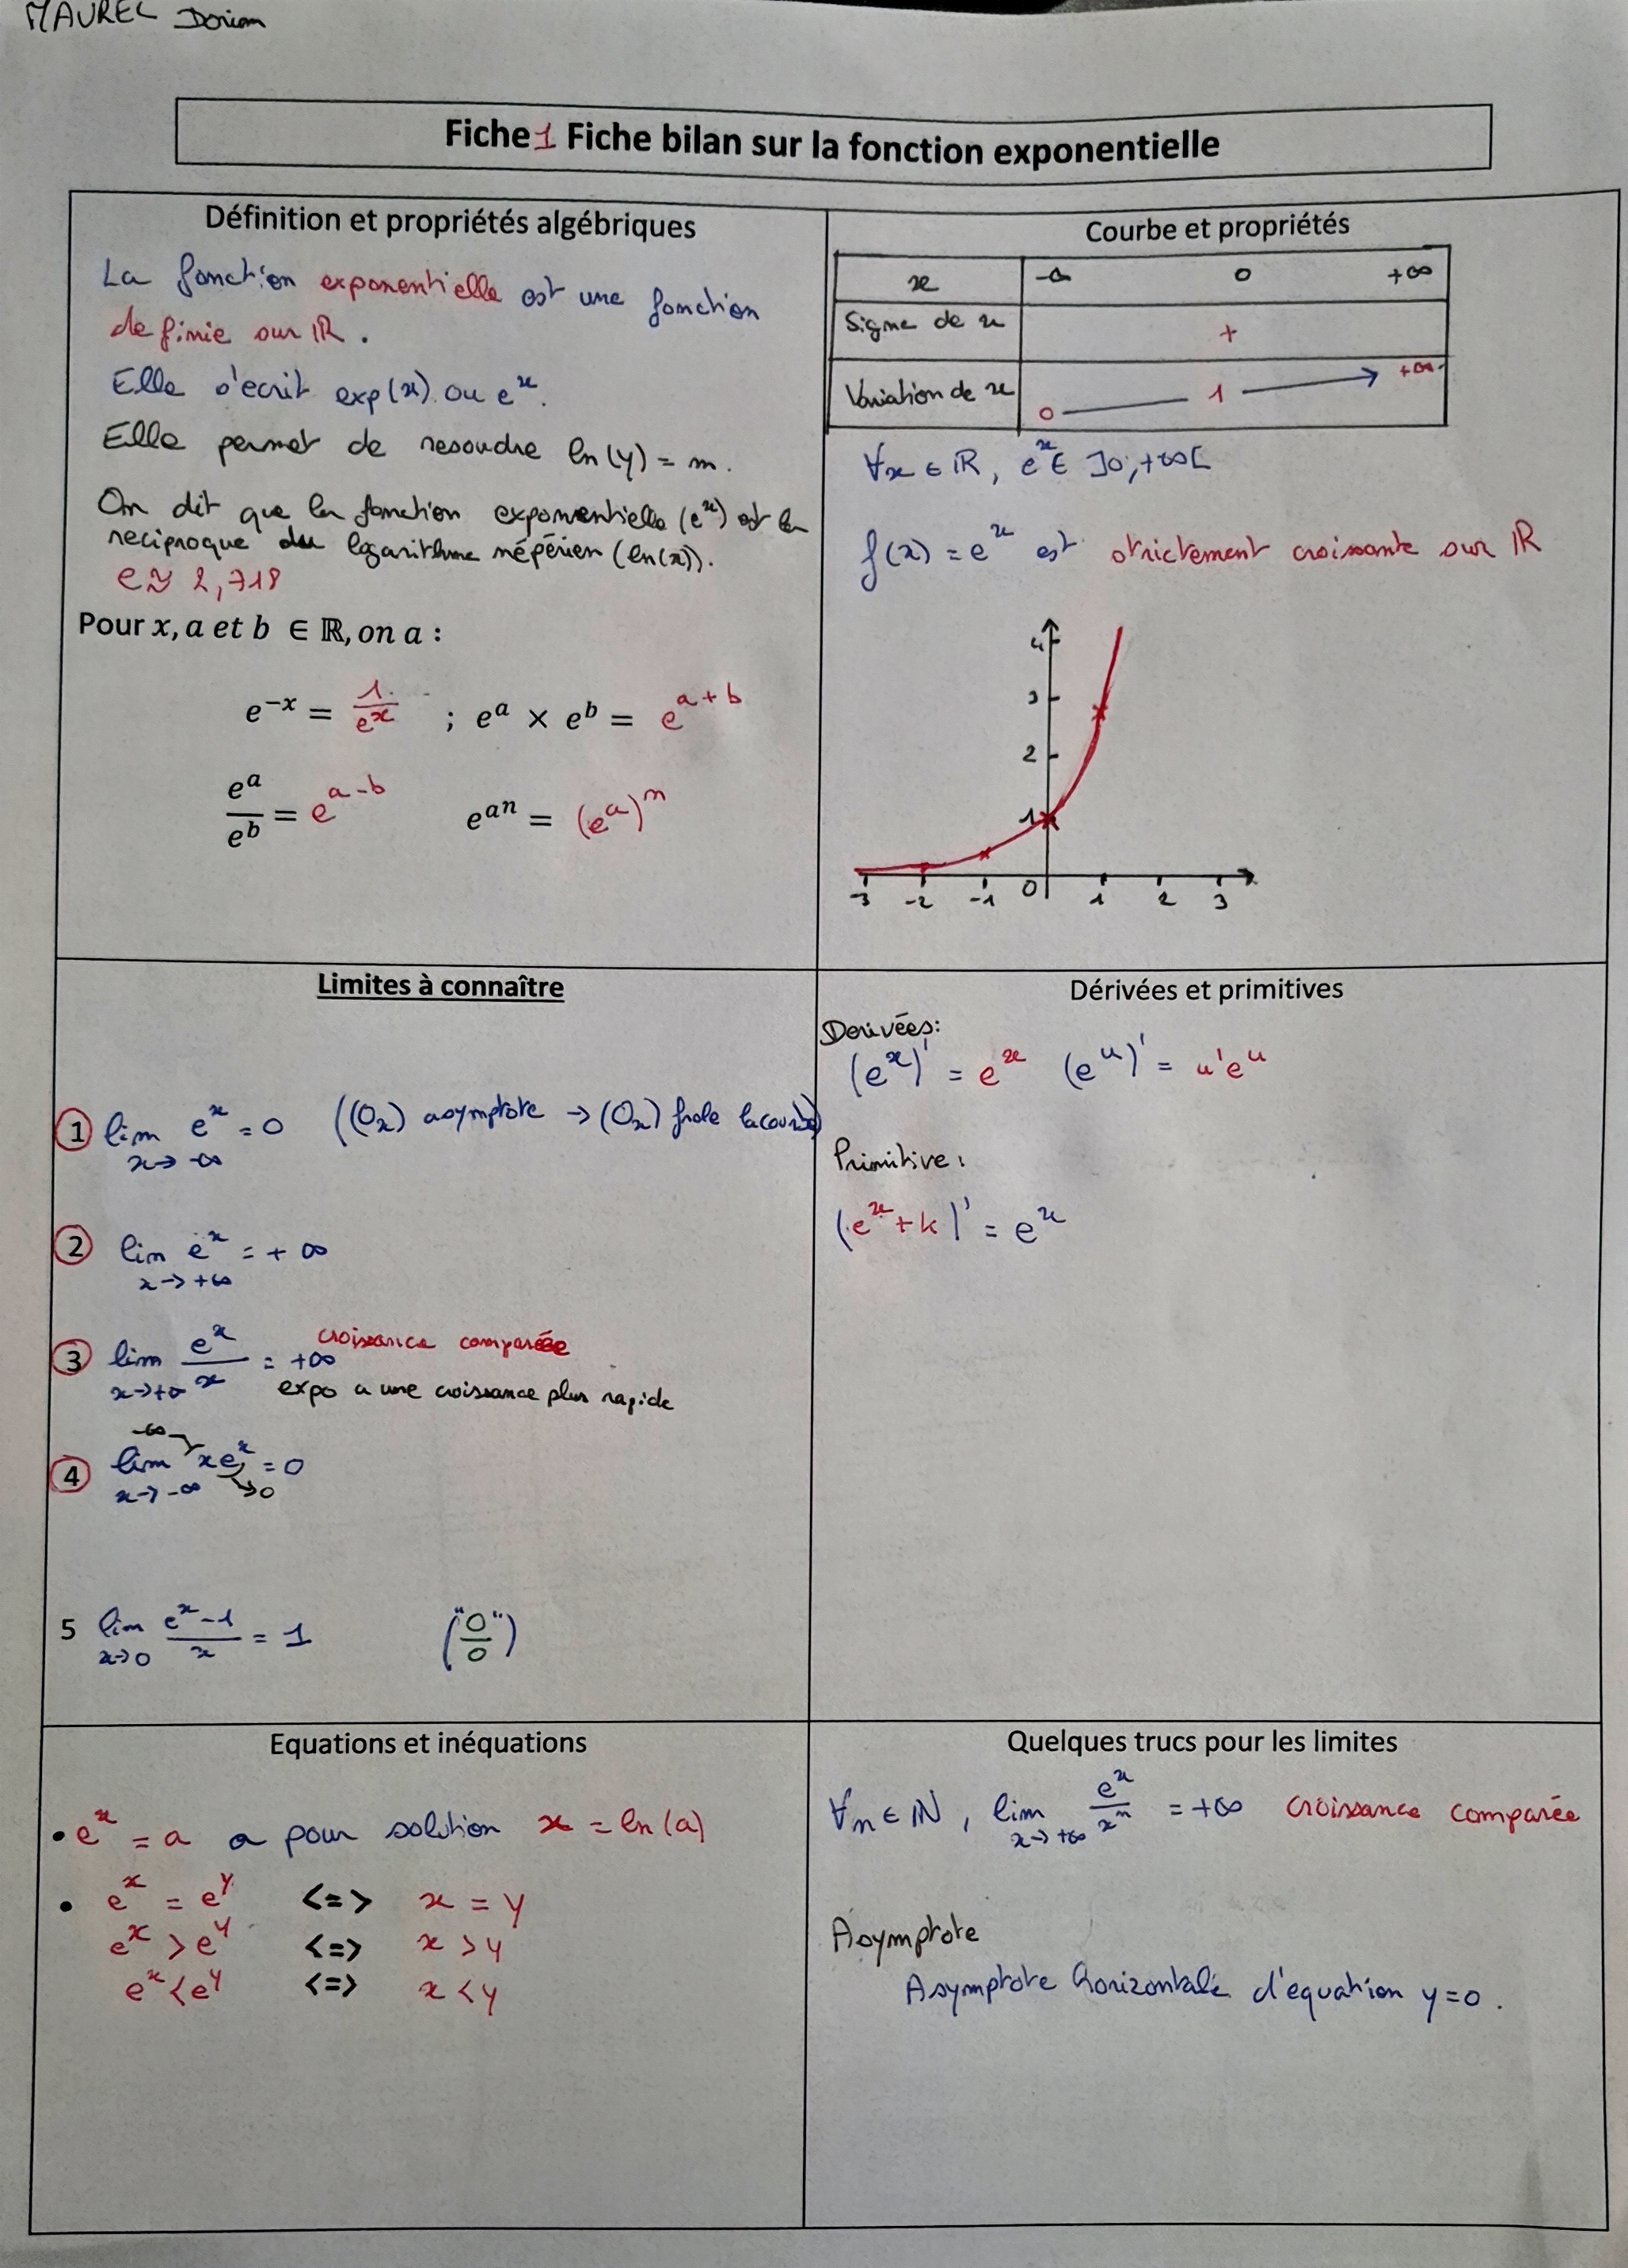 MAUREL Dorian
Fiche 1 Fiche bilan sur la fonction exponentielle
Définition et propriétés algébriques
La fonction exponentielle est une fonction
definie sur ℝ.
Elle s'ecrit exp(x) ou e^x.
Elle permet de resoudre ln(y) = m.
On dit que la fonction exponentielle (e^x) est la
reciproque du logarithme népérien (ln(x)).
e ≈ 2,718
Pour x, a et b ∈ ℝ, on a :
e^{-x} = 1/e^x ; e^a × e^b = e^{a+b}
e^a/e^b = e^{a-b} e^{an} = (e^a)^n
Courbe et propriétés
x -∞ 0 +∞
Signe de x +
Variation de x 0 1 +∞
∀x ∈ ℝ, e^x ∈ ]0;+∞[
f(x) = e^x est strictement croissante sur ℝ
4
3
2
1
-3 -2 -1 0 1 2 3
Limites à connaître
1 lim x→-∞ e^x = 0 ((Ox) asymptote → (Ox) frole la courbe)
2 lim x→+∞ e^x = +∞
3 lim x→+∞ e^x/x = +∞ croissance comparée
expo a une croissance plus rapide
-∞
4 lim x→-∞ xe^x = 0
→0
5 lim x→0 (e^x-1)/x = 1 ("0/0")
Dérivées et primitives
Derivées:
(e^x)' = e^x (e^u)' = u'e^u
Primitive:
(e^x + k)' = e^x
Equations et inéquations
• e^x = a a pour solution x = ln(a)
• e^x = e^y <=> x = y
e^x > e^y <=> x > y
e^x < e^y <=> x < y
Quelques trucs pour les limites
∀n ∈ ℕ, lim x→+∞ e^x/x^n = +∞ croissance comparée
Asymptote
Asymptote horizontale d'equation y=0.